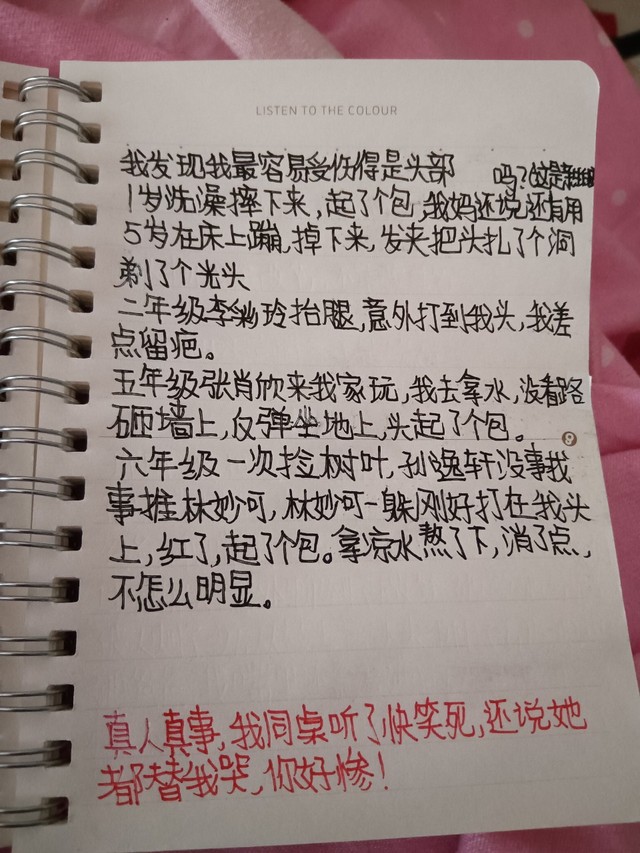 LISTEN TO THE COLOUR
我发现我最容易受伤得是头部 吗?这是
1岁洗澡摔下来,起了个包,我妈还说还有用
5岁在床上蹦,掉下来,发夹把头扎了个洞
剃了个光头
二年级李彩玲抬腿,意外打到我头,我差
点留疤。
五年级张肖欣来我家玩,我去拿水,没看路
砸墙上,反弹坐地上,头起了个包。
六年级一次捡树叶,孙逸轩没事找
事推林妙可,林妙可一躲刚好打在我头
上,红了,起了个包。拿凉水熬了下,消了点,
不怎么明显。
真人真事,我同桌听了快笑死,还说她
都替我哭,你好惨!